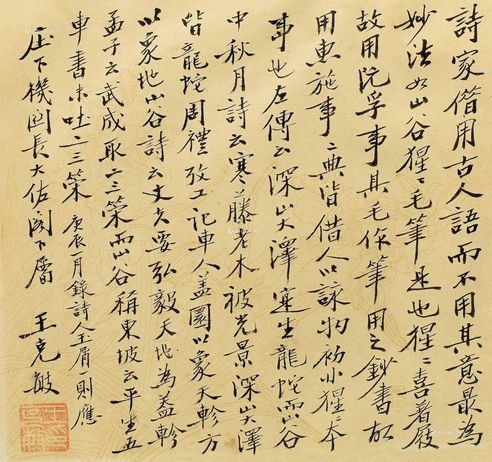 詩家借用古人語而不用其意最為
妙法如山谷猩〻毛筆是也猩〻喜著屐
故用阮孚事其毛作筆用之鈔書故
用惠施事二典皆借人以詠物初非猩〻本
事也左傳云深山大澤寔生龍蛇而山谷
中秋月詩云寒藤老木被光景深山大澤
皆龍蛇周禮攷工記車人盖圜以象天軫方
以象地山谷詩云丈夫要弘毅天地為盖軫
孟子云武成取二三策而山谷稱東坡云平生五
車書未吐二三策 庚辰月錄詩人玉屑則應
庄下機関長大佐閣下屬 王克敏